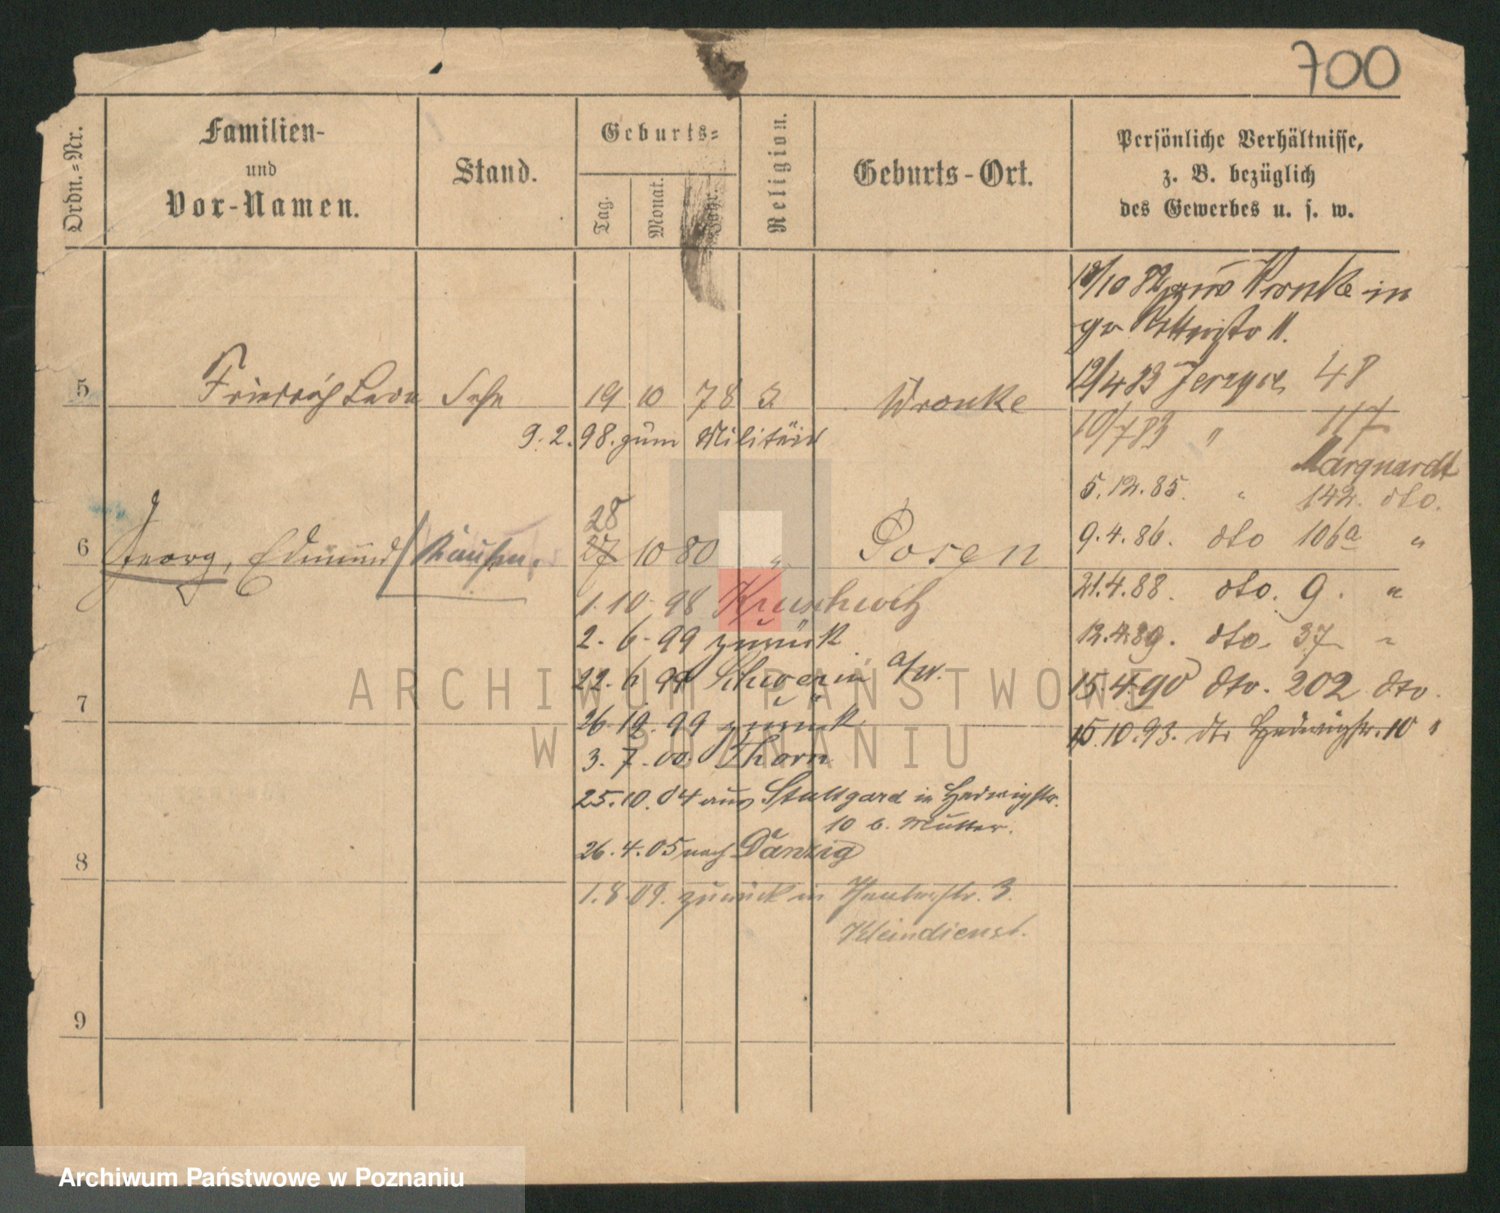 700
Ordn.-Nr.
Familien-
und
Vor-Namen.
Stand.
Geburts-
Tag.
Monat.
Jahr.
Religion.
Geburts-Ort.
Persönliche Verhältnisse,
z. B. bezüglich
des Gewerbes u. s. w.
10 82 aus Wronke in
12/4 83 Jerzyce 48
5 Friedrich Leon Sohn 19 10 78 Wronke
10/7 83 " 117
9. 2. 98. zum Militär
Marquardt
5.12.85. " 142. dto.
28
6 Georg, Edmund 27 10 80 " Posen
9.4.86. dto 106a "
1. 10. 98 Kruschwitz
21.4.88. dto. 9. "
2. 6. 99 zurück
12.4.89. dto. 37 "
22. 6. 99 Schwerin a/W.
15.4.90 dto. 202 dto.
7
26. 10. 99 zurück
15.10.93. dto Hedwigstr. 10 "
3. 7. 00. Thorn
25.10.04 aus Stuttgard in Hedwigstr.
10 b. Mutter.
8
26.4.05 nach Danzig
1.8.09. zurück in 3.
Kleindienst.
9
ARCHIWUM PAŃSTWOWE
W POZNANIU
Archiwum Państwowe w Poznaniu